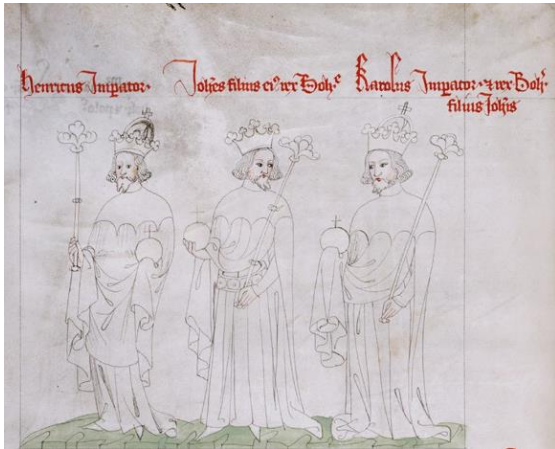 henricus Impator· Johēs filius eiꝰ rex Boheͤ Karolus Impator· ⁊ rex Boh·
filius Johīs